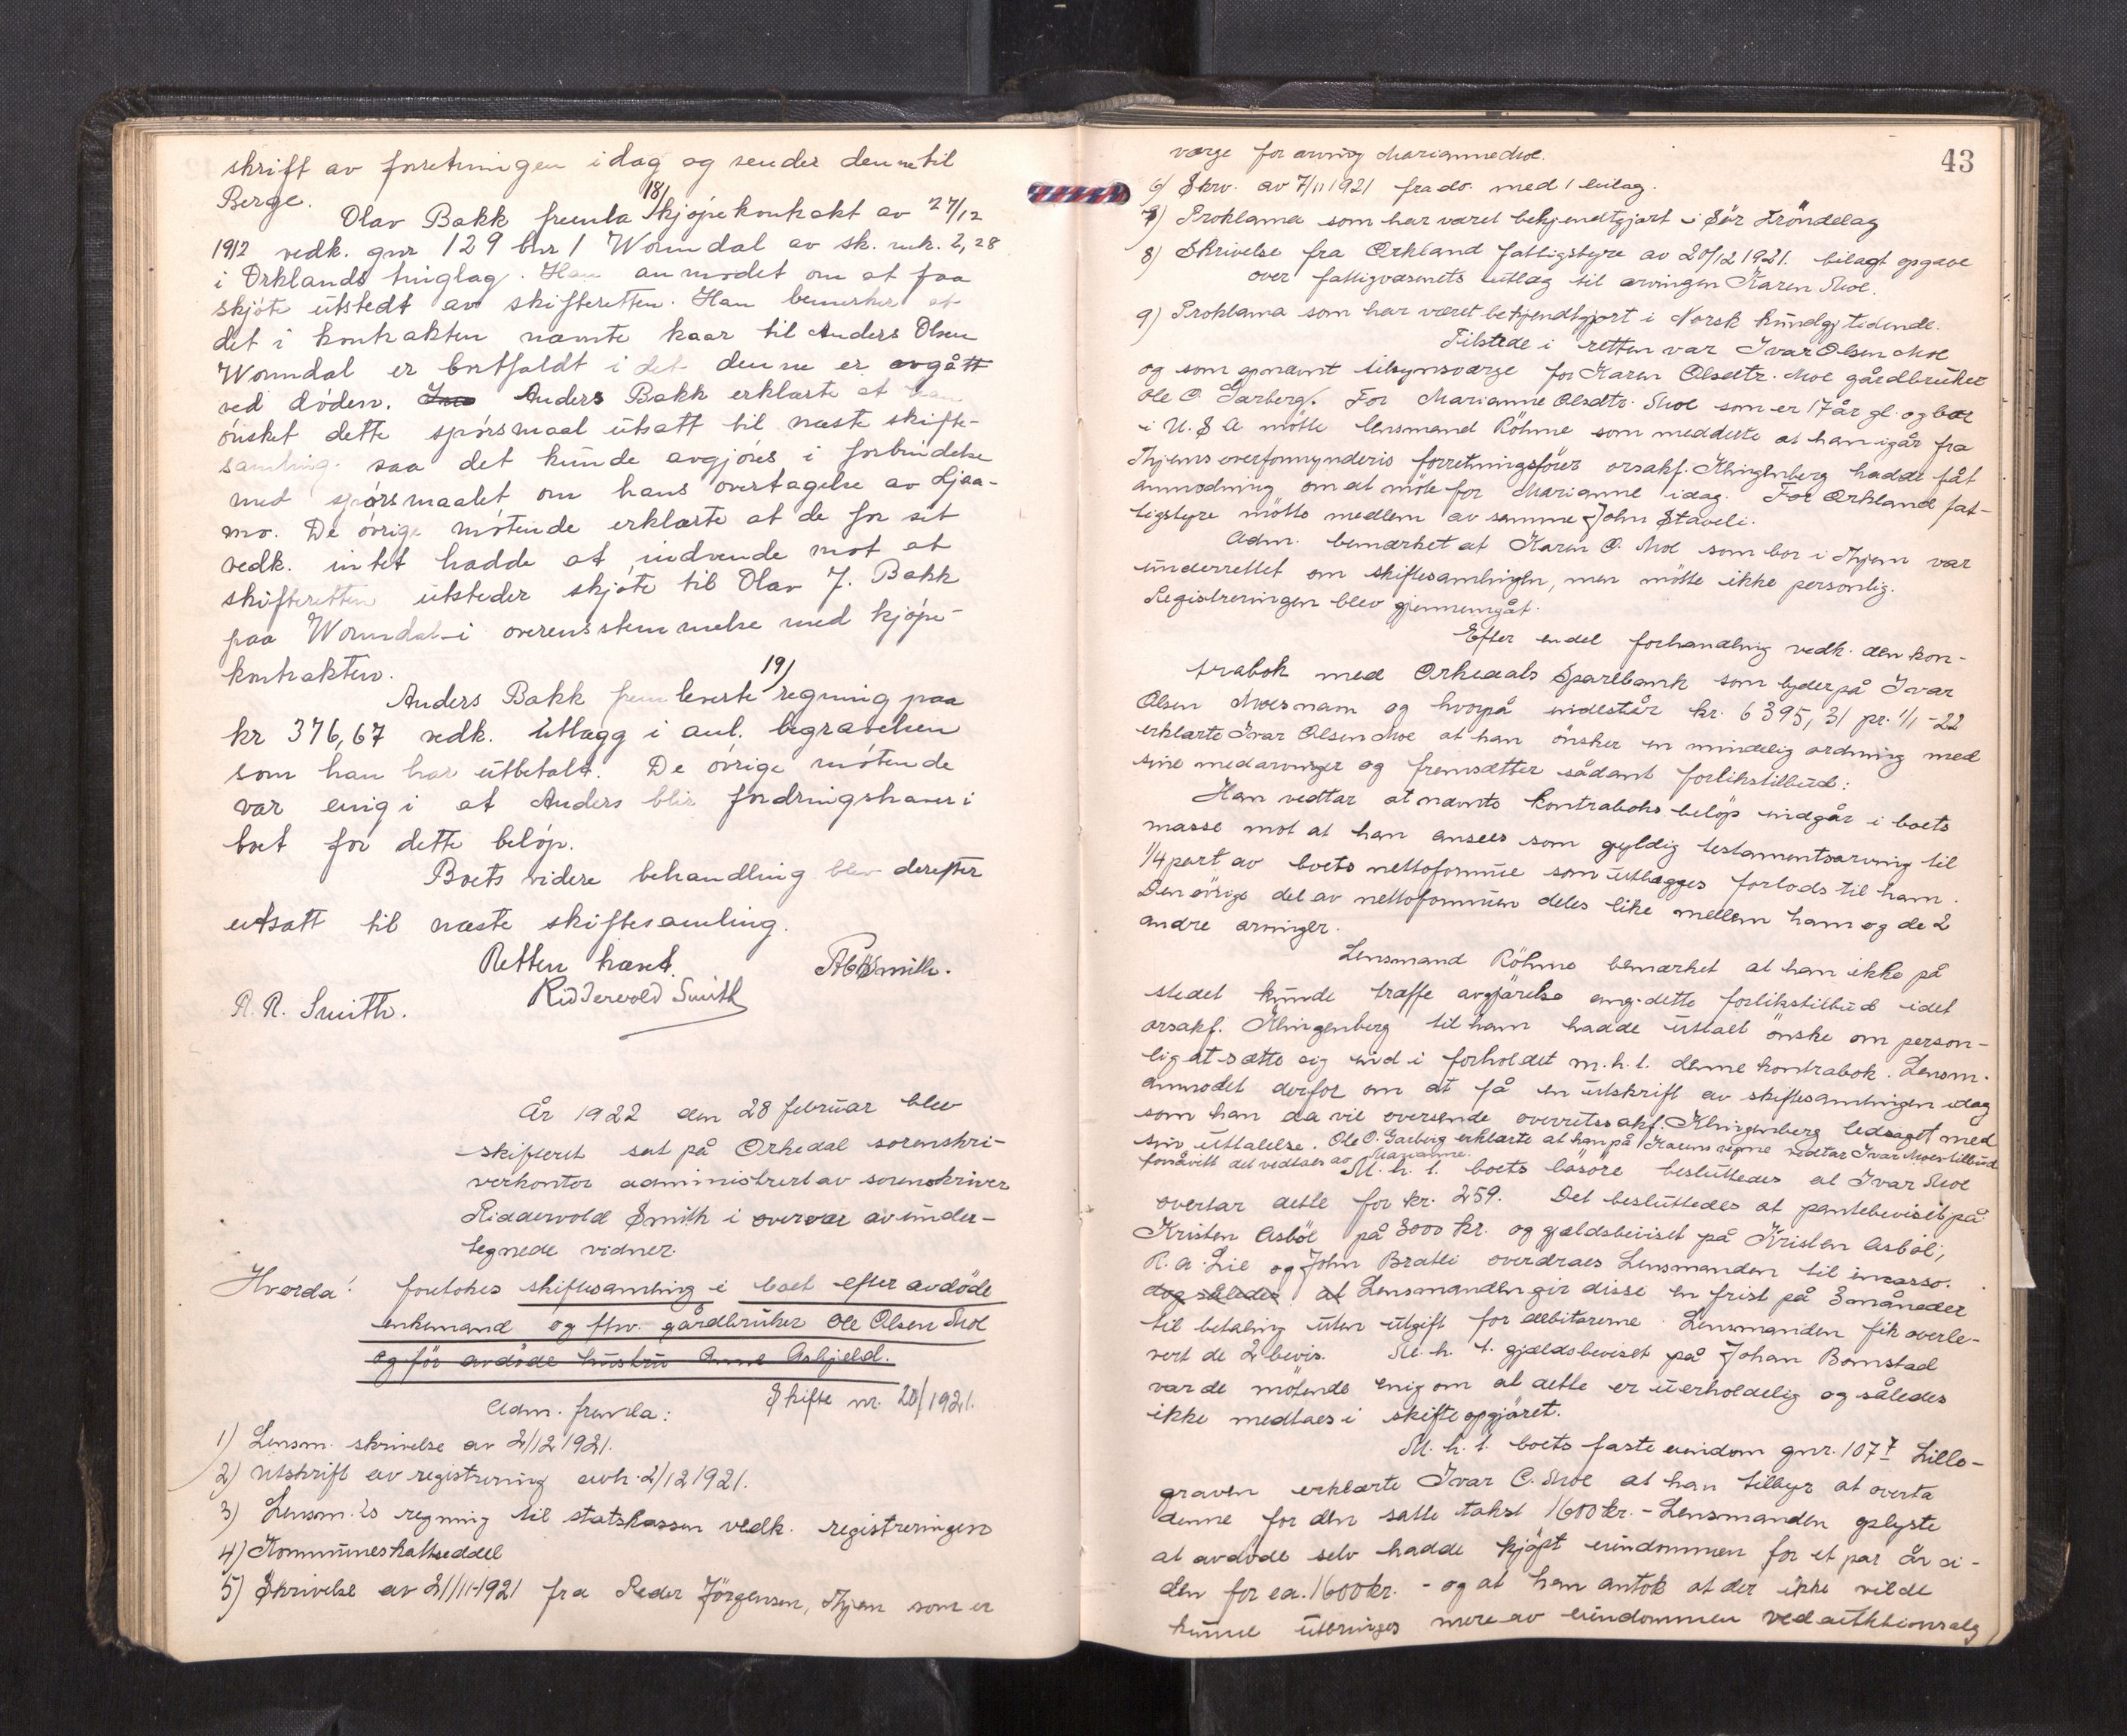 skrift av forretningen idag og sender denne til
Berge.
Olav Bakk fremla 18/ kjøpekontrakt av 27/12
1912 vedk. gnr 129 bnr 1 Wormdal av sk. mrk. 2,28
i Orklands tinglag. Han anmodet om at faa
skjøte utstedt av skifteretten. Han bemerker at
det i kontrakten nævnte kaar til Anders Olsen
Wormdal er bortfaldt i det denne er avgått
ved døden. Anders Bakk erklærte at han
ønsket dette spørsmaal utsatt til næste skifte-
samling saa det kunde avgjøres i forbindelse
med spørsmaalet om hans overtagelse av
mo. De øvrige møtende erklærte at de for sit
vedk. intet hadde at indvende mot at
skifteretten utsteder skjøte til Olav J. Bakk
paa Wormdal i overensstemmelse med kjøpe-
kontrakten.
Anders Bakk fremleverte 19/ regning paa
kr 376,67 vedk. utlegg i anl. begravelsen
som han har utbetalt. De øvrige møtende
var enig i at Anders blir fordringshaver i
boet for dette beløp.
Boets videre behandling blev derefter
utsatt til næste skiftesamling.
Retten hævet.
R. R. Smith. Riddervold Smith
År 1922 den 28 februar blev
skifteret sat på Orkedal sorenskri-
verkontor administrert av sorenskriver
Riddervold Smith i overvær av under-
tegnede vidner.
Hvorda: foretokes skiftesamling i boet efter avdöde
enkemand og fhv. gårdbruker Ole Olsen Moe
og för avdöde hustru Anne Asbjeld.
Adm. fremla: Skifte nr. 20/1921.
1) Lensm. skrivelse av 2/12 1921.
2) Utskrift av registrering avh. 2/12 1921.
3) Lensm.'s regning til statskassen vedk. registreringen
4) Kommuneskatteseddel
5) Skrivelse av 21/11-1921 fra Peder Jörgensen, Thjem som er
43
værge for arving Marianne Moe.
6) Skrv. av 7/11 1921 fra do. med 1 bilag.
7) Proklama som har været bekjendtgjort i Sör Tröndelag
8) Skrivelse fra Orkland fattigstyre av 20/12 1921. bilagt opgave
over fattigvæsenets utlæg til arvingen Karen Moe.
9) Proklama som har været bekjendtgjort i Norsk kundgj. tidende.
Tilstede i retten var Ivar Olsen Moe
og som opnævnt tilsynsværge for Karen Olsdtr. Moe gårdbruker
Ole O. Garberg. For Marianne Olsdtr. Moe som er 17 år gl. og bor
i U.S.A mötte lensmand Röhme som meddelte at han igår fra
Thjems overformynderis forretningsförer orsakf. Klingenberg hadde fåt
anmodning om at möte for Marianne idag. For Orkland fat-
tigstyre mötte medlem av samme John Staveli.
Adm. bemærket at Karen O. Moe som bor i Thjem var
underrettet om skiftesamlingen, men mötte ikke personlig.
Registreringen blev gjennemgåt.
Efter endel forhandling vedk. den kon-
trabok med Orkedals Sparebank som lyder på Ivar
Olsen Moes navn og hvorpå indestår kr. 6395,31 pr. 1/1-22
erklærte Ivar Olsen Moe at han önsker en mindelig ordning med
sine medarvinger og fremsætter sådant forlikstilbud:
Han vedtar at nævnte kontraboks belöp indgår i boets
masse mot at han ansees som gyldig testamentsarving til
1/4 part av boets nettoformue som utlægges forlods til ham.
Den övrige del av nettoformuen deles like mellem ham og de 2
andre arvinger.
Lensmand Röhme bemærket at han ikke på
stedet kunde træffe avgjörelse ang. dette forlikstilbud idet
orsakf. Klingenberg til ham hadde uttalt önske om person-
lig at sætte sig ind i forholdet m.h.t. denne kontrabok. Lensm.
anmodet derfor om at få en utskrift av skiftesamlingen idag
som han da vil oversende overretssakf. Klingenberg ledsaget med
sin uttalelse. Ole O. Garberg erklærte at han på Karens vegne vedtar Ivar Moes tilbud
forsåvitt det vedtaes av Marianne.
M.h.t. boets lösöre besluttedes at Ivar Moe
overtar dette for kr. 259. Det besluttedes at pantebeviset på
Kristen Asböl på 3000 kr. og gjældsbeviset på Kristen Asböl,
R. A. Lie og John Bratli overdraes Lensmanden til incasso.
dog således at Lensmanden gir disse en frist på 3 måneder
til betaling uten utgift for debitorerne. Lensmanden fik overle-
vert de 2 bevis. M.h.t. gjældsbeviset på Johan Bomstad
var de mötende enig om at dette er uerholdelig og således
ikke medtaes i skifteopgjöret.
M.h.t. boets faste eiendom gnr. 107 7 Lille-
graven erklærte Ivar O. Moe at han tilbyr at overta
denne for den satte takst 1600 kr. - Lensmanden oplyste
at avdöde selv hadde kjöpt eiendommen for et par år si-
den for ca. 1600 kr. - og at han antok at der ikke vilde
kunne utbringes mere av eiendommen ved auktionsalg